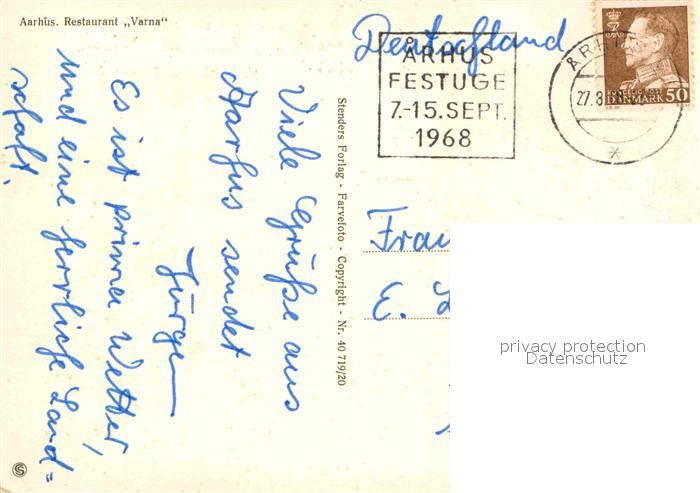 Aarhus. Restaurant „Varna“
Deutschland
ÅRHUS
FESTUGE
7.-15.SEPT.
1968
ÅRHUS
27.8.
DANMARK 50
Viele Grüße aus
Aarhus sendet
Jürgen
Es ist prima Wetter,
und eine herrliche Land=
schaft.
Stenders Forlag - Farvefoto - Copyright - Nr. 40 719/20
Frau
E.
privacy protection
Datenschutz